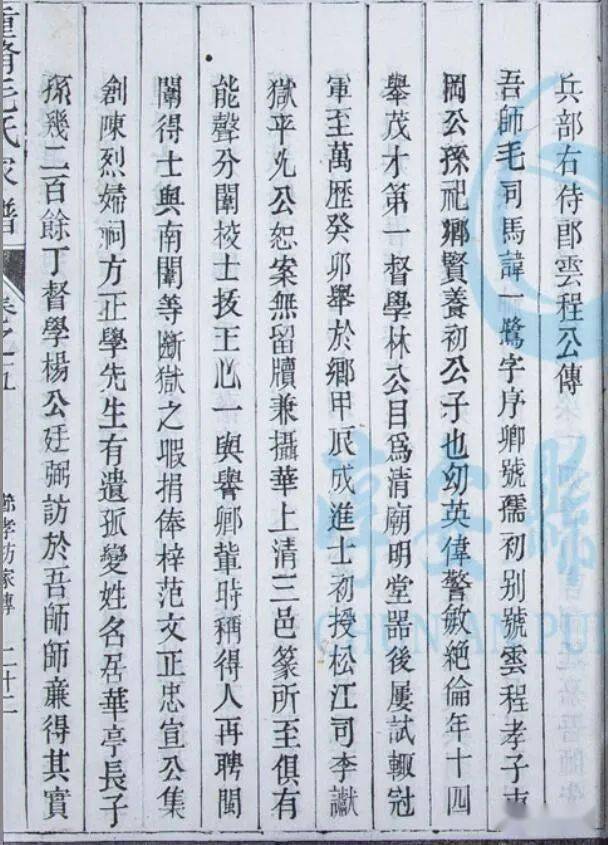 兵部右侍郎雲程公傳
吾師毛司馬諱一鷺字序卿號孺初别號雲程孝子東
岡公孫祀鄉賢養初公子也幼英偉警敏絶倫年十四
舉茂才第一督學林公目爲清廟明堂器後屢試輙冠
軍至萬歷癸卯舉於鄉甲辰成進士初授松江司李讞
獄平允公恕案無留牘兼攝華上清三邑篆所至俱有
能聲分闈校士拔王心一與譽卿軰時稱得人再聘閩
闈得士與南闈等斷獄之暇捐俸梓范文正忠宣公集
創陳烈婦祠方正學先生有遺孤變姓名居華亭長子
孫幾二百餘丁督學楊公廷弼訪於吾師師亷得其實
重脩毛氏家譜
卷之十五
鄉孝坊家傳
二十二
淳安縣
CHUN AN PU